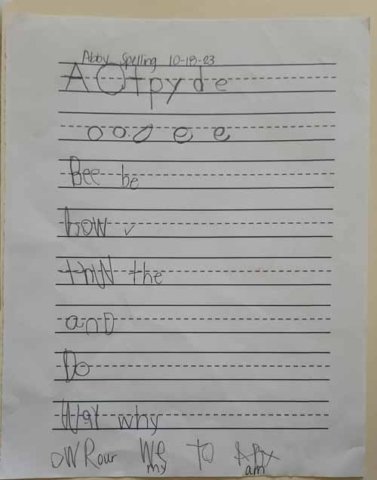 Abby Spelling 10-18-23
A O t p y d e
o o d e e
Bee be
how ✓
thw the
anD
Do
Wat why
oWR our We my TO am